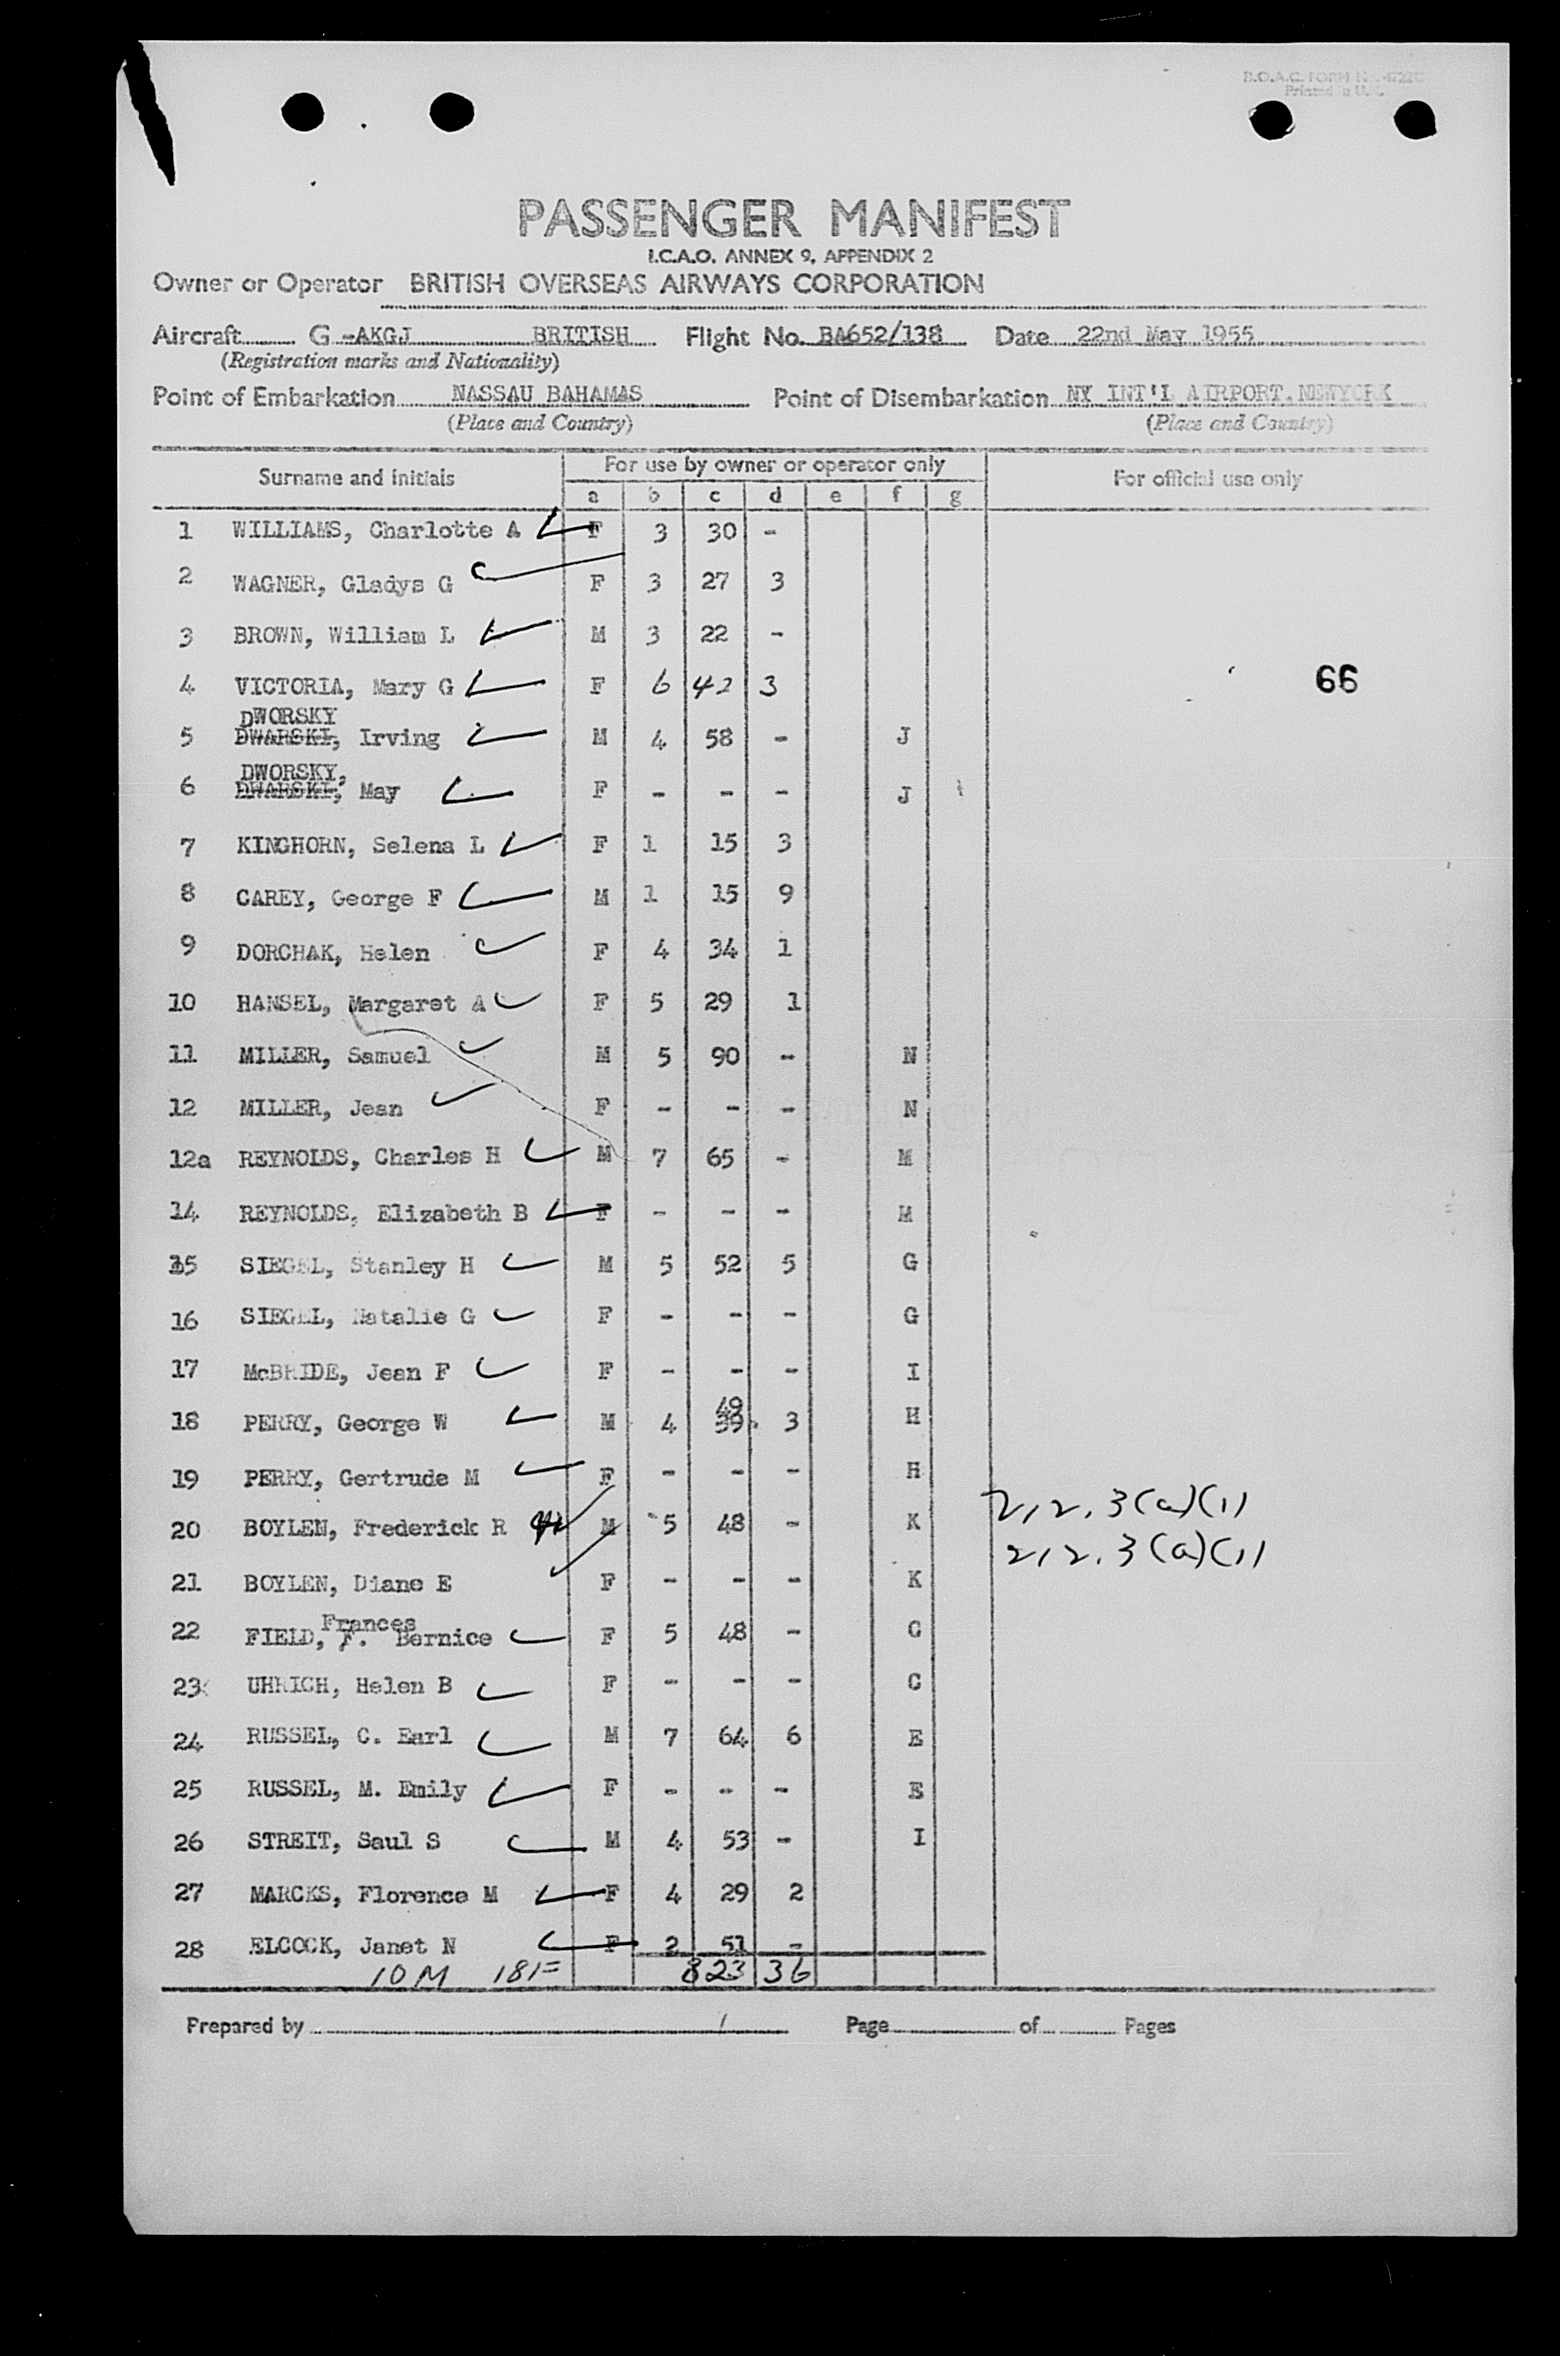 B.O.A.C. FORM
Printed in U.K.
PASSENGER MANIFEST
I.C.A.O. ANNEX 9, APPENDIX 2
Owner or Operator BRITISH OVERSEAS AIRWAYS CORPORATION
Aircraft G -AKGJ BRITISH Flight No. BA652/138 Date 22nd May 1955
(Registration marks and Nationality)
Point of Embarkation NASSAU BAHAMAS Point of Disembarkation NY INT'L AIRPORT.NEWYORK
(Place and Country) (Place and Country)
Surname and initials For use by owner or operator only For official use only
a b c d e f g
1 WILLIAMS, Charlotte A F 3 30 -
2 WAGNER, Gladys G F 3 27 3
3 BROWN, William L M 3 22 -
4 VICTORIA, Mary G F 6 42 3 66
DWORSKY
5 DWARSKI, Irving M 4 58 - J
DWORSKY,
6 DWARSKI, May F - - - J
7 KINGHORN, Selena L F 1 15 3
8 CAREY, George F M 1 15 9
9 DORCHAK, Helen F 4 34 1
10 HANSEL, Margaret A F 5 29 1
11 MILLER, Samuel M 5 90 - N
12 MILLER, Jean F - - - N
12a REYNOLDS, Charles H M 7 65 - M
14 REYNOLDS, Elizabeth B F - - - M
15 SIEGEL, Stanley H M 5 52 5 G
16 SIEGEL, Natalie G F - - - G
17 McBRIDE, Jean F F - - - I
49
18 PERRY, George W M 4 39 3 H
19 PERRY, Gertrude M F - - - H
20 BOYLEN, Frederick R M 5 48 - K 212.3(a)(1)
21 BOYLEN, Diane E F - - - K 212.3(a)(1)
Frances
22 FIELD, F. Bernice F 5 48 - C
23 UHRICH, Helen B F - - - C
24 RUSSEL, C. Earl M 7 64 6 E
25 RUSSEL, M. Emily F - - - E
26 STREIT, Saul S M 4 53 - I
27 MARCKS, Florence M F 4 29 2
28 ELCOCK, Janet N F 2 51 -
10M 18F 823 36
Prepared by Page of Pages